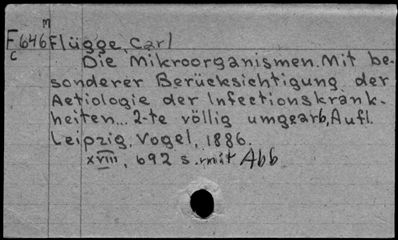 M
F646 Flügge, Carl
C
Die Mikroorganismen. Mit be-
sonderer Berücksichtigung der
Aetiologie der Infectionskrank-
heiten... 2-te völlig umgearb. Aufl.
Leipzig, Vogel, 1886.
xviii, 692 s. mit Abb